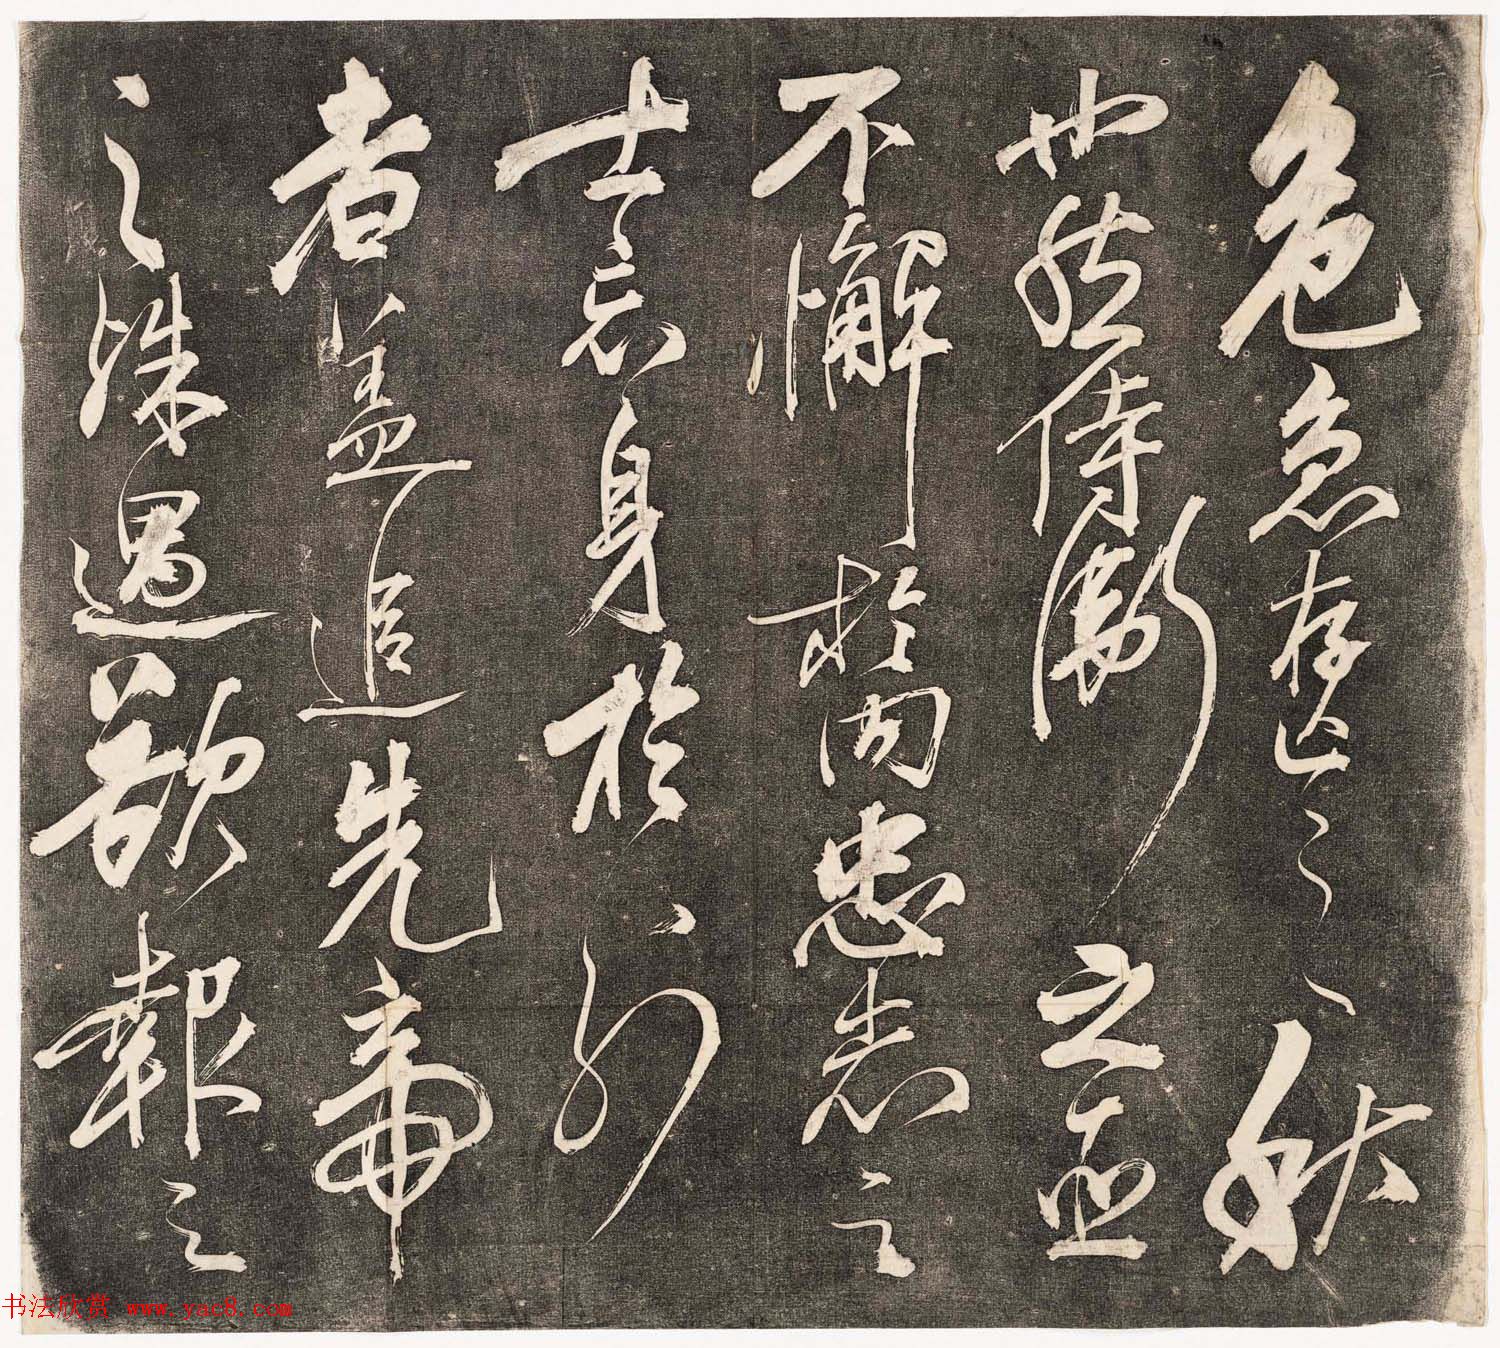 危急存亡之秋
也然侍衛之臣
不懈於内忠志之
士忘身於外
者盖追先帝
之殊遇欲報之
书法欣赏 www.yac8.com